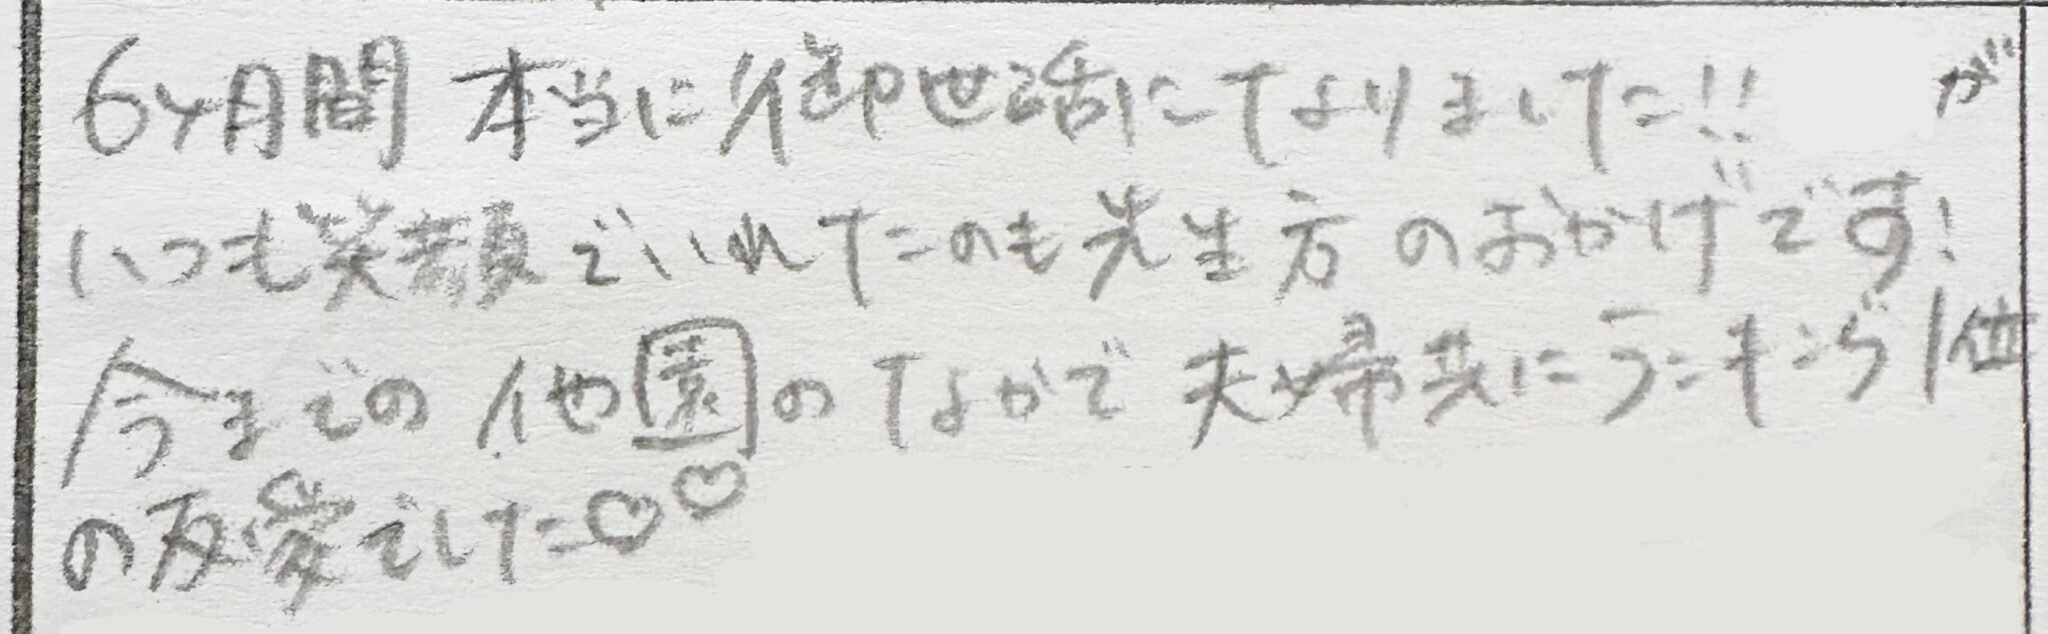 6ヶ月間 本当に御世話になりました!! が
いつも笑顔でいれたのも先生方のおかげです!
今までの他園のなかで夫婦共にランキング1位
の友愛でした♡♡